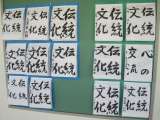 伝統
文化
伝統
文化
伝統
文化
伝統
文化
伝統
文化
伝統
文化
伝統
文化
伝統
文化
心の
交流
伝統
文化
伝統
文化
伝統
文化
伝統
文化